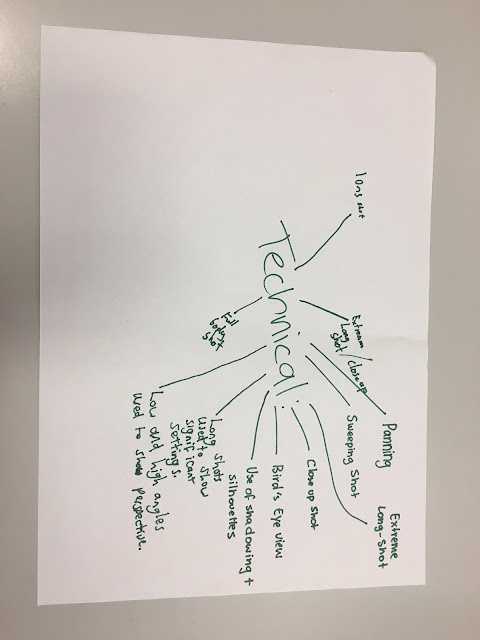 Technical:
long shot
Extream
Long
shot / close up
Panning
Sweeping Shot
Extreme
Long-Shot
Close up shot
Bird's Eye view
Use of shadowing +
silhouettes
Long shots
used to show
significant
settings.
Low and high angles
used to show perspective.
Full
body
shot